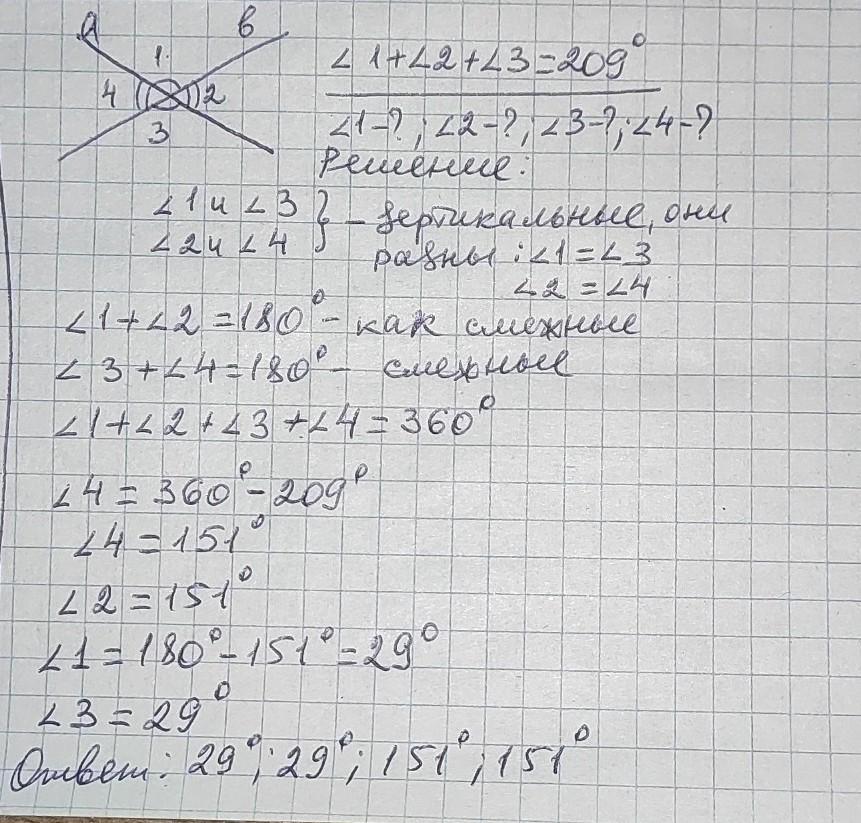 a b
1
4 2
3
∠1+∠2+∠3=209°
∠1-?; ∠2-?; ∠3-?; ∠4-?
Решение:
∠1 и ∠3 } - вертикальные, они
∠2 и ∠4 равны: ∠1=∠3
∠2=∠4
∠1+∠2=180° - как смежные
∠3+∠4=180° - смежные
∠1+∠2+∠3+∠4=360°
∠4=360°-209°
∠4=151°
∠2=151°
∠1=180°-151°=29°
∠3=29°
Ответ: 29°; 29°; 151°; 151°